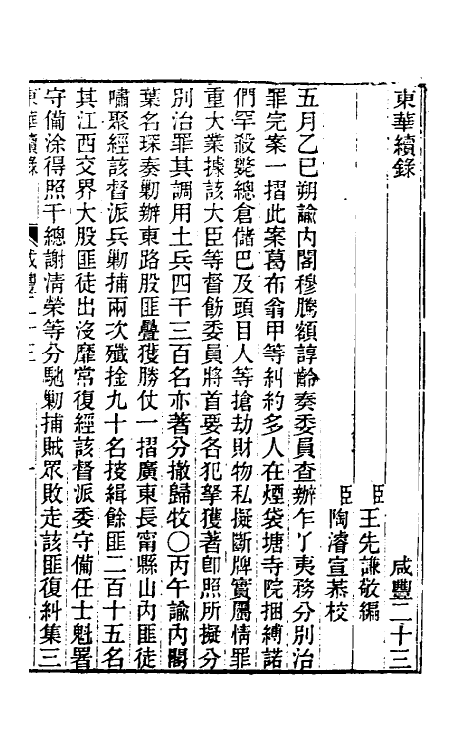 東華續錄 咸豐二十三
臣王先謙敬編
臣陶濬宣恭校
五月乙巳朔諭內閣穆騰額諄齡奏委員查辦乍丫夷務分別治
罪完案一摺此案葛布翁甲等糾約多人在煙袋塘寺院捆縛諾
們罕殺斃總倉儲巴及頭目人等搶劫財物私擬斷牌實屬情罪
重大業據該大臣等督飭委員將首要各犯拏獲著即照所擬分
別治罪其調用土兵四千三百名亦著分撤歸牧〇丙午諭內閣
葉名琛奏勦辦東路股匪疊獲勝仗一摺廣東長甯縣山內匪徒
嘯聚經該督派兵勦捕兩次殲捡九十名接緝餘匪二百十五名
其江西交界大股匪徒出沒靡常復經該督派委守備任士魁署
守備涂得照千總謝清榮等分馳勦捕賊眾敗走該匪復糾集三
東華續錄 咸豐二十三 一